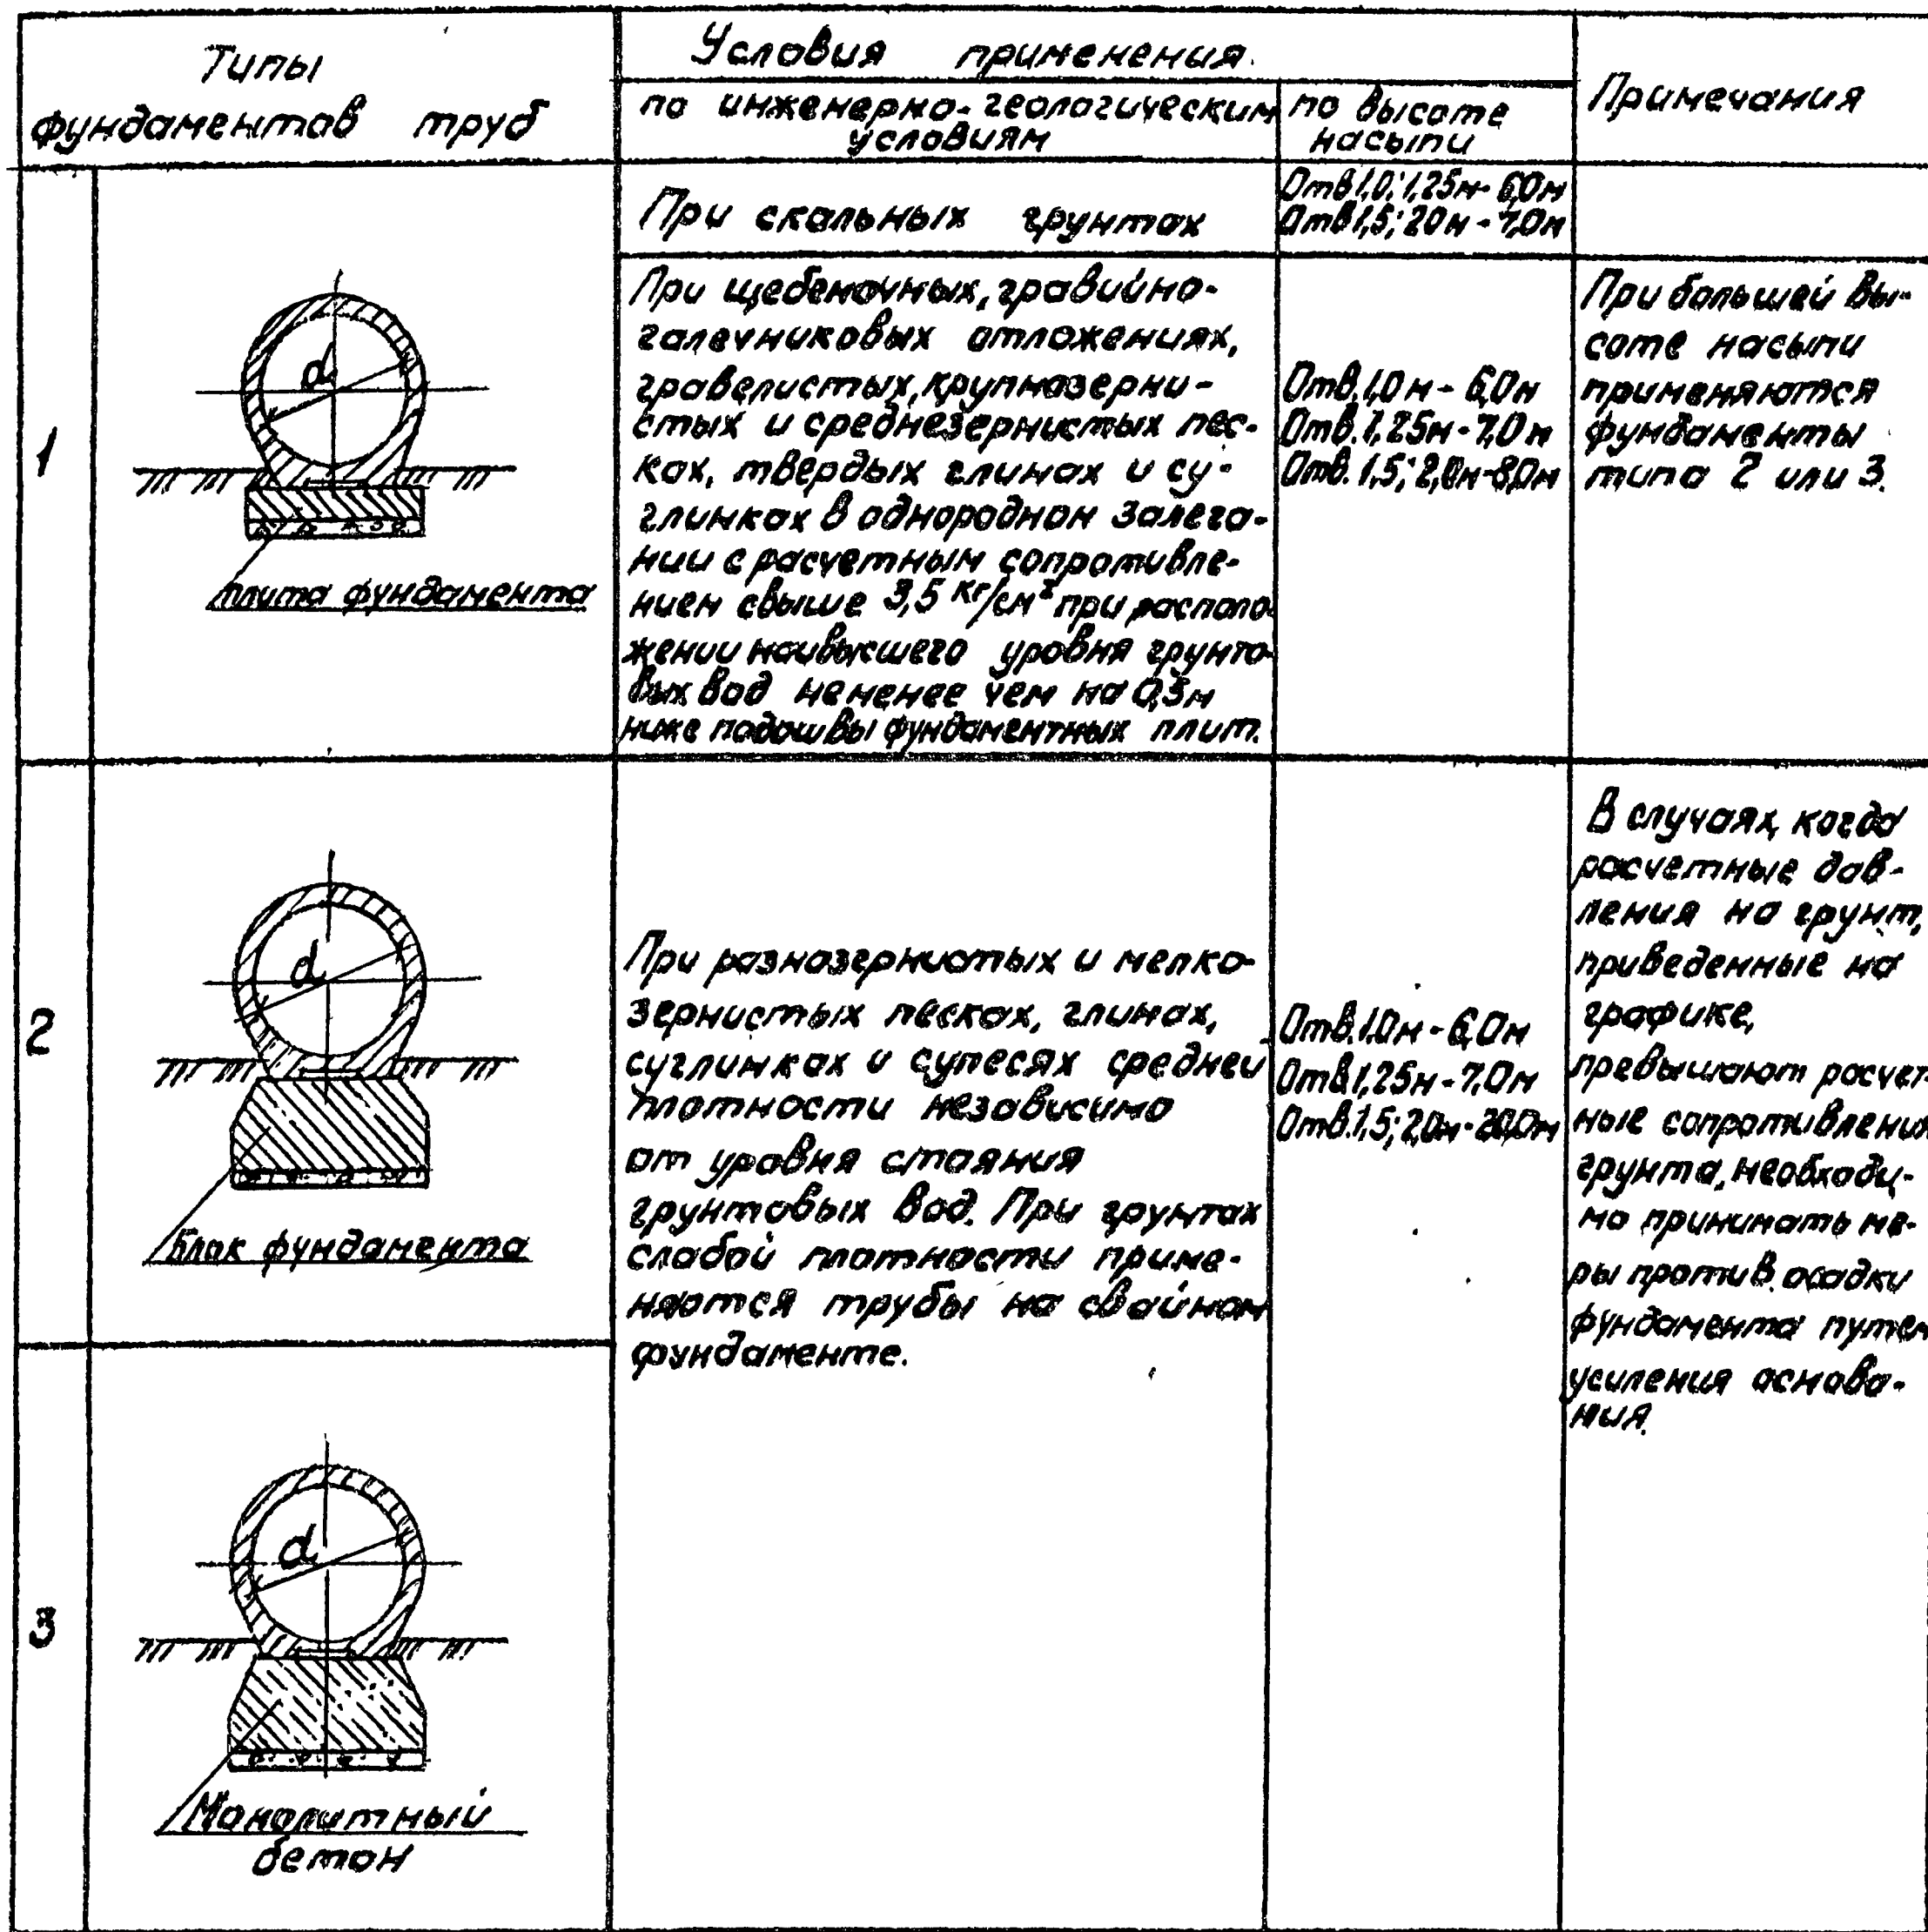 Типы
фундаментов труб
Условия применения.
по инженерно-геологическим
условиям
по высоте
насыпи
Примечания
1
d
плита фундамента
При скальных грунтах
Отв 1,0; 1,25м- 6,0м
Отв 1,5; 2,0м - 7,0м
При щебеночных, гравийно-
галечниковых отложениях,
гравелистых, крупнозерни-
стых и среднезернистых пес-
ках, твердых глинах и су-
глинках в однородном залега-
нии с расчетным сопротивле-
нием свыше 3,5 кг/см² при располо-
жении наивысшего уровня грунто-
вых вод не менее чем на 0,3м
ниже подошвы фундаментных плит.
Отв. 1,0м - 6,0м
Отв. 1,25м - 7,0м
Отв. 1,5; 2,0м-8,0м
При большей вы-
соте насыпи
применяются
фундаменты
типа 2 или 3.
2
d
Блок фундамента
При разнозернистых и мелко-
зернистых песках, глинах,
суглинках и супесях средней
плотности независимо
от уровня стояния
грунтовых вод. При грунтах
слабой плотности приме-
няются трубы на свайном
фундаменте.
Отв. 1,0м - 6,0м
Отв. 1,25м - 7,0м
Отв. 1,5; 2,0м - 20,0м
В случаях, когда
расчетные дав-
ления на грунт,
приведенные на
графике,
превышают расчет-
ные сопротивления
грунта, необходи-
мо принимать ме-
ры против осадки
фундамента путем
усиления основа-
ния.
3
d
Монолитный
бетон